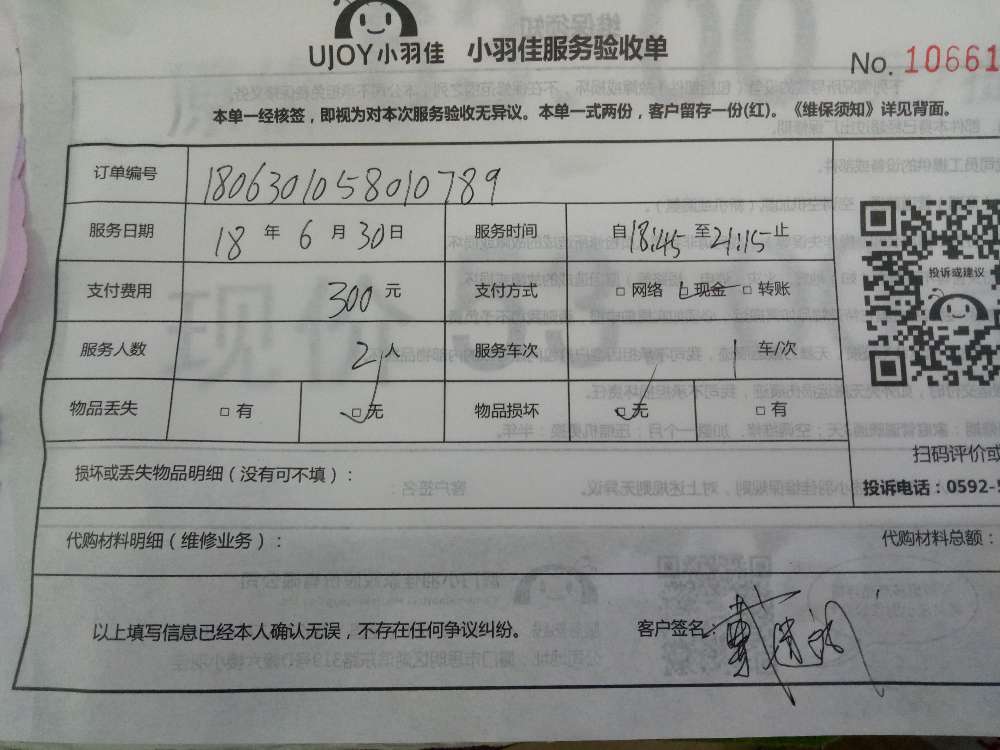 UJOY小羽佳 小羽佳服务验收单
No. 10661
本单一经核签，即视为对本次服务验收无异议。本单一式两份，客户留存一份(红)。《维保须知》详见背面。
订单编号 1806301058010789
服务日期 18 年 6 月 30 日 服务时间 自18:45至21:15止
支付费用 300 元 支付方式 □ 网络 □ 现金 □ 转账
投诉或建议
服务人数 2 人 服务车次 1 车/次
物品丢失 □ 有 □ 无 物品损坏 □ 无 □ 有
扫码评价或
损坏或丢失物品明细（没有可不填）：
投诉电话：0592-5
代购材料明细（维修业务）： 代购材料总额：
以上填写信息已经本人确认无误，不存在任何争议纠纷。 客户签名：